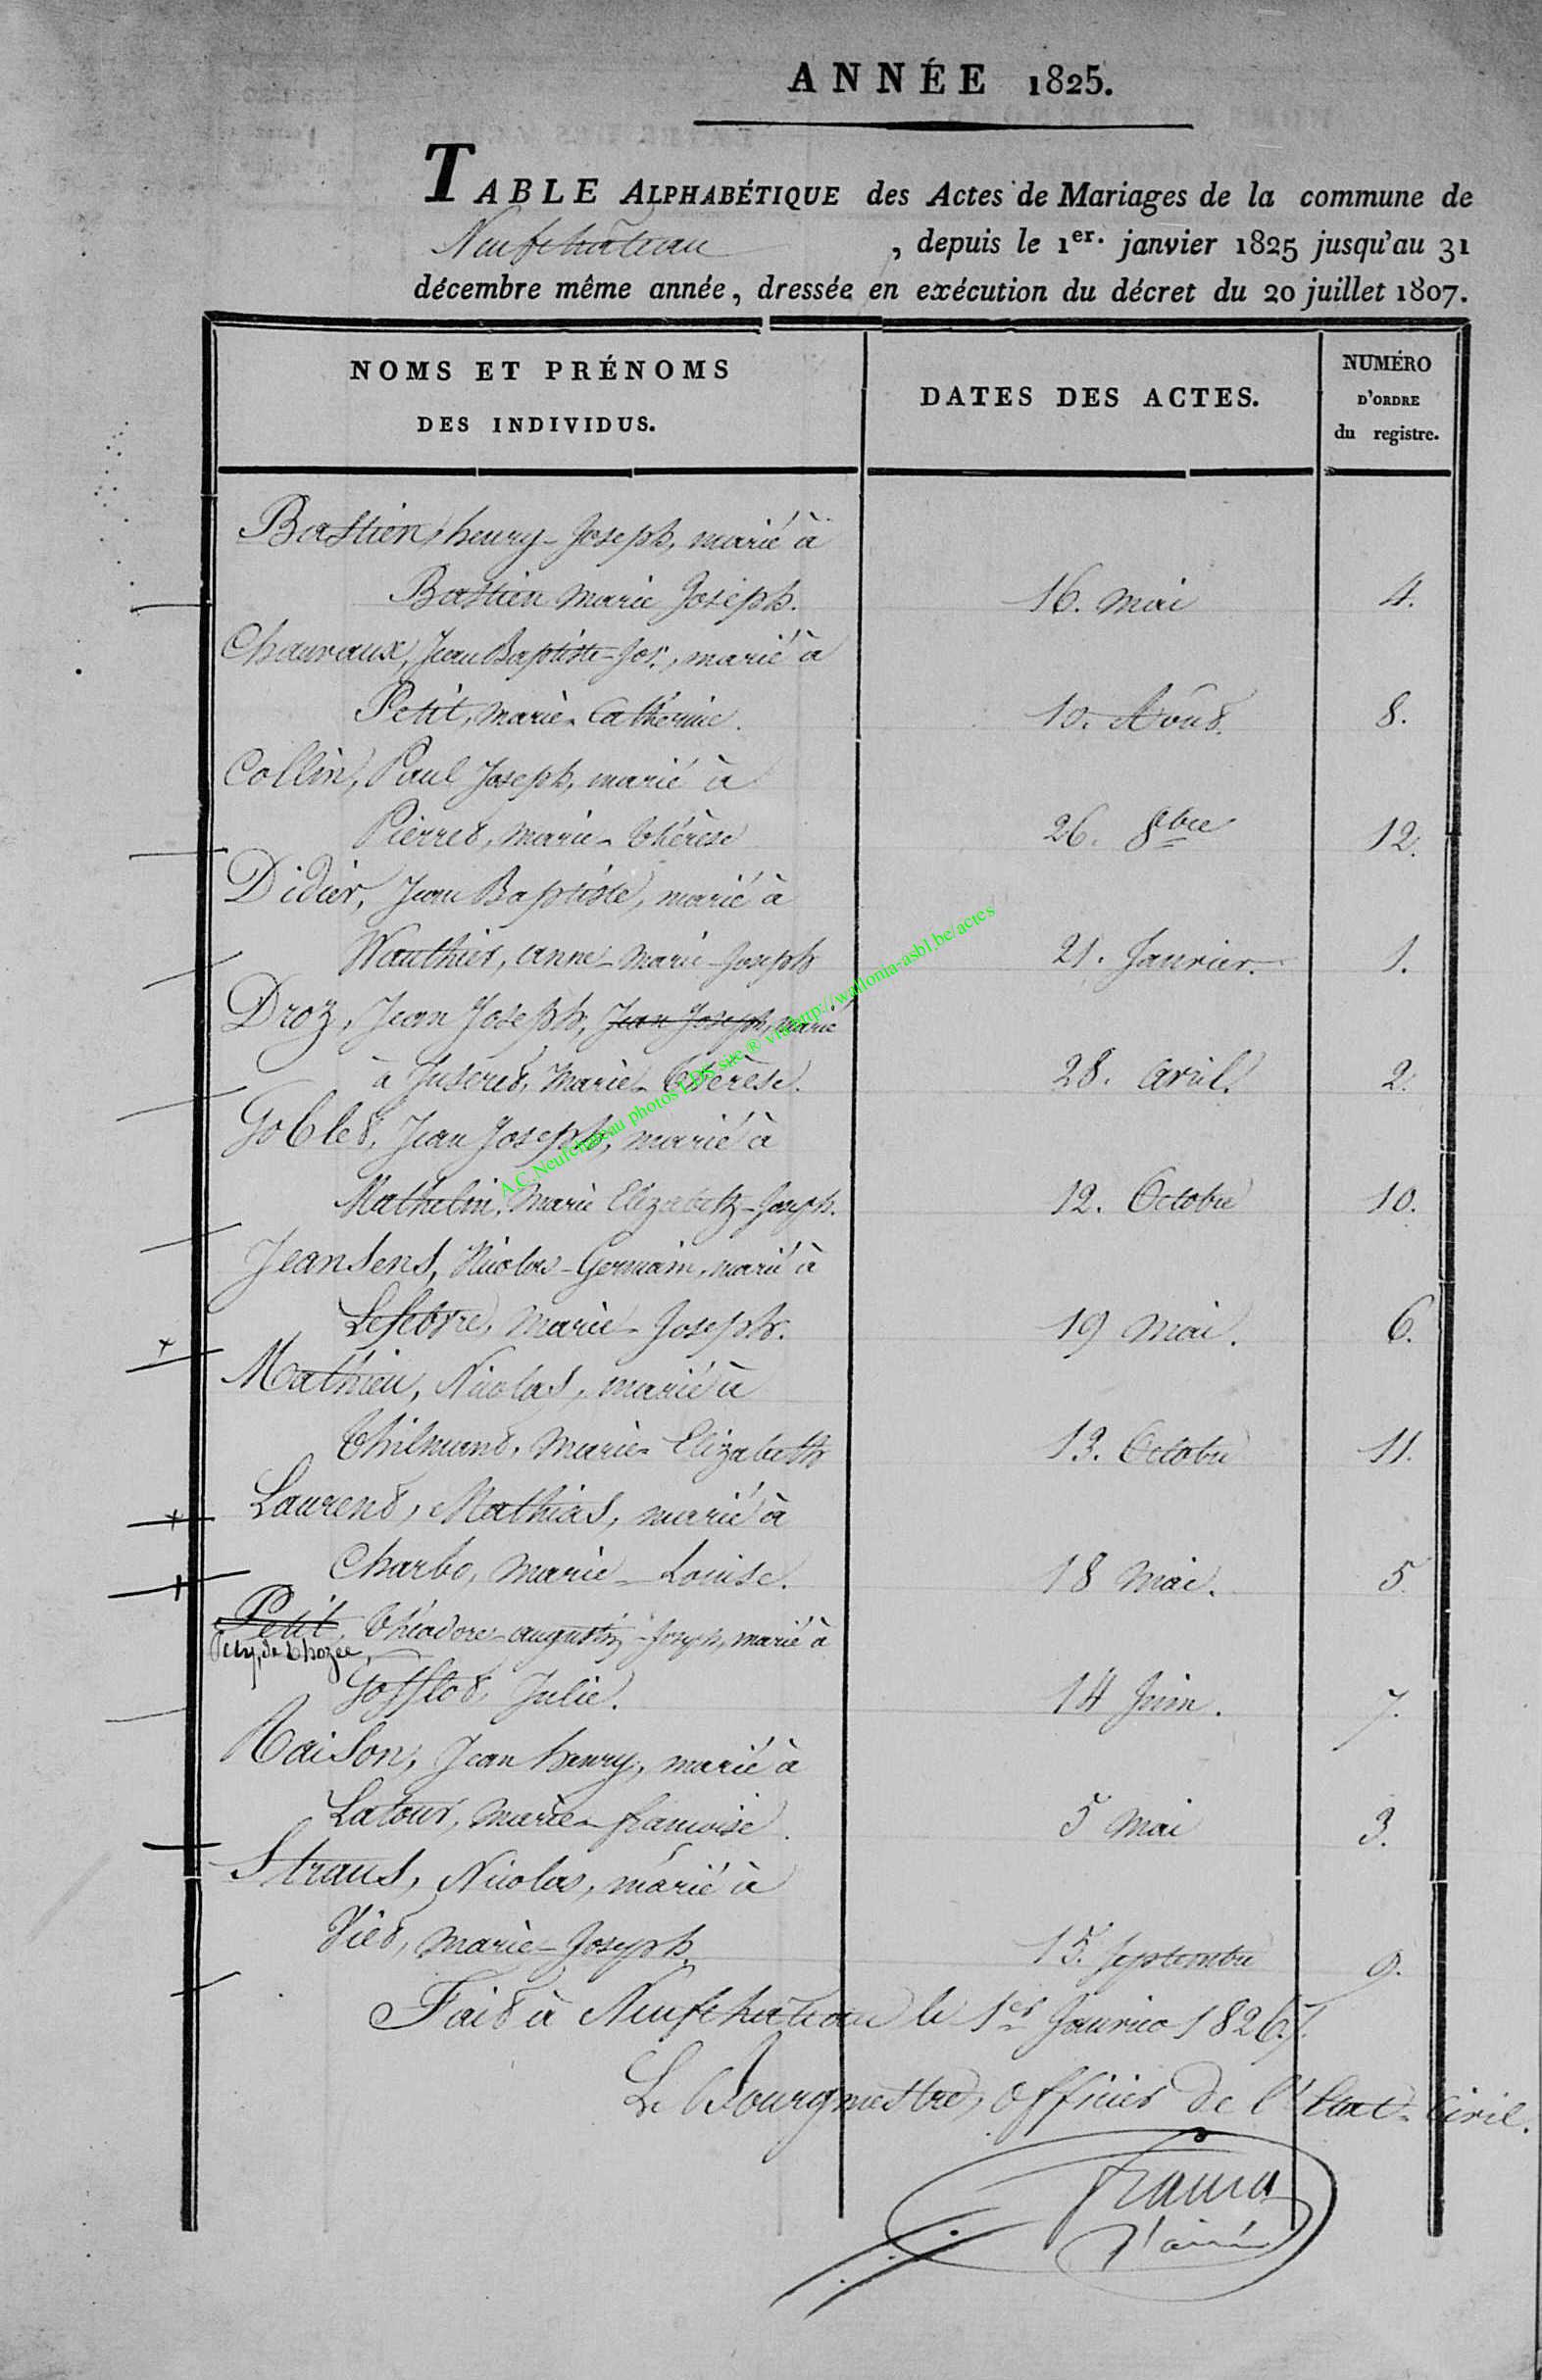 ANNÉE 1825.
TABLE ALPHABÉTIQUE des Actes de Mariages de la commune de
Neufchâteau, depuis le 1er. janvier 1825 jusqu'au 31
décembre même année, dressée en exécution du décret du 20 juillet 1807.
NOMS ET PRÉNOMS
DES INDIVIDUS.
DATES DES ACTES.
NUMÉRO
D'ORDRE
du registre.
Bastien, henry-Joseph, marié à
Bastien Marie Joseph. 16. Mai 4.
Chauvaux, Jean Baptiste-Jos., marié à
Petit, Marie-Catherine. 10. Aout. 8.
Collin, Paul Joseph, marié à
Pierret, Marie-thérèse 26. 8bre 12.
Didier, Jean Baptiste, marié à
Wauthier, anne-Marie-Joseph 21. Janvier. 1.
Droz, Jean Joseph, Jean Joseph, Marié
à Jusseret, Marie-Thérèse. 28. avril. 2.
Goblet, Jean Joseph, marié à
Mathelin, Marie Elizabeth-Joseph. 12. Octobre 10.
Jeansens, Nicolas-Germain, marié à
Lefebvre, Marie-Joseph. 19 Mai. 6.
Mathieu, Nicolas, marié à
Thilmant, Marie-Elizabeth 13. Octobre 11.
Laurent, Mathias, marié à
Charbo, Marie-Louise. 18 Mai. 5.
Petit, théodore-augustin-Joseph, marié à
Pety, de thozée,
Gofflot, Julie. 14 Juin. 7.
Raison, Jean henry, marié à
Latour, Marie-françoise. 5 Mai 3.
Straus, Nicolas, marié à
Viet, Marie-Joseph. 15. Septembre 9.
Fait à Neufchâteau le 1er Janvier 1826.
Le Bourgmestre, Officier de l'Etat-Civil.
l'ainé
A.C.Neufchateau photos EDS site ® via http://wallonia-asbl.be/actes